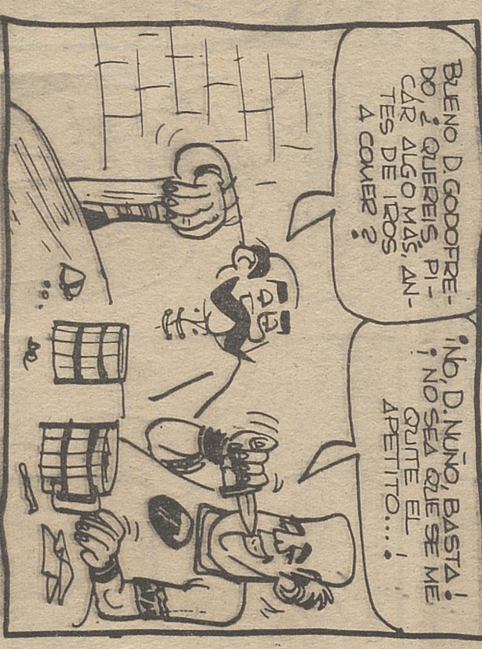 BUENO D. GODOFRE-
DO, ¿QUEREIS PI-
CAR ALGO MAS, AN-
TES DE IROS
A COMER?
¡NO, D. NUÑO, BASTA!
¡NO SEA QUE SE ME
QUITE EL
APETITO...!